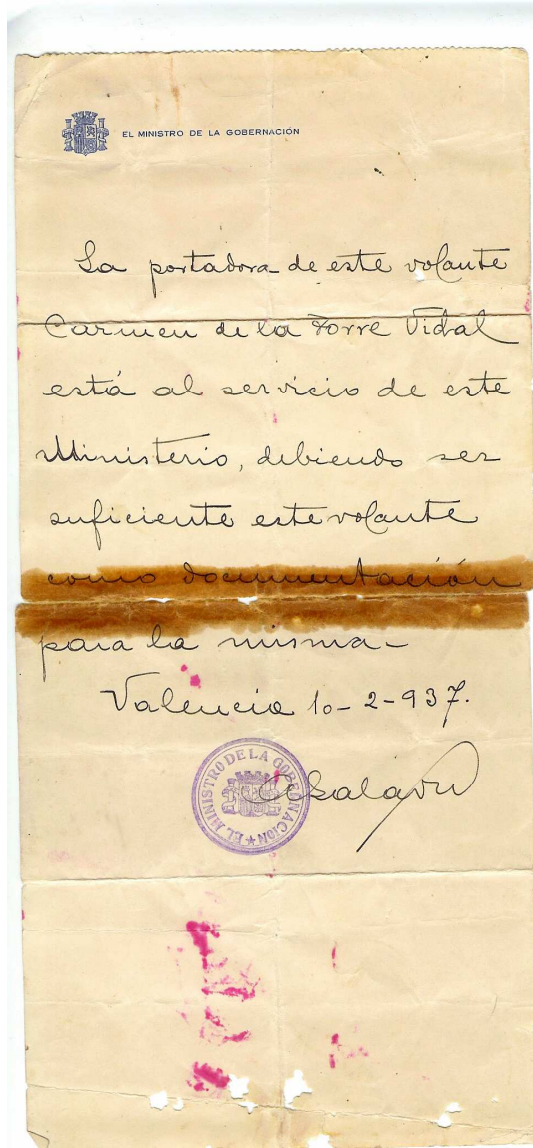 EL MINISTRO DE LA GOBERNACIÓN
La portadora de este volante
Carmen de la Torre Vidal
está al servicio de este
Ministerio, debiendo ser
suficiente este volante
como documentación
para la misma-
Valencia 10-2-937.
EL MINISTRO DE LA GOBERNACION